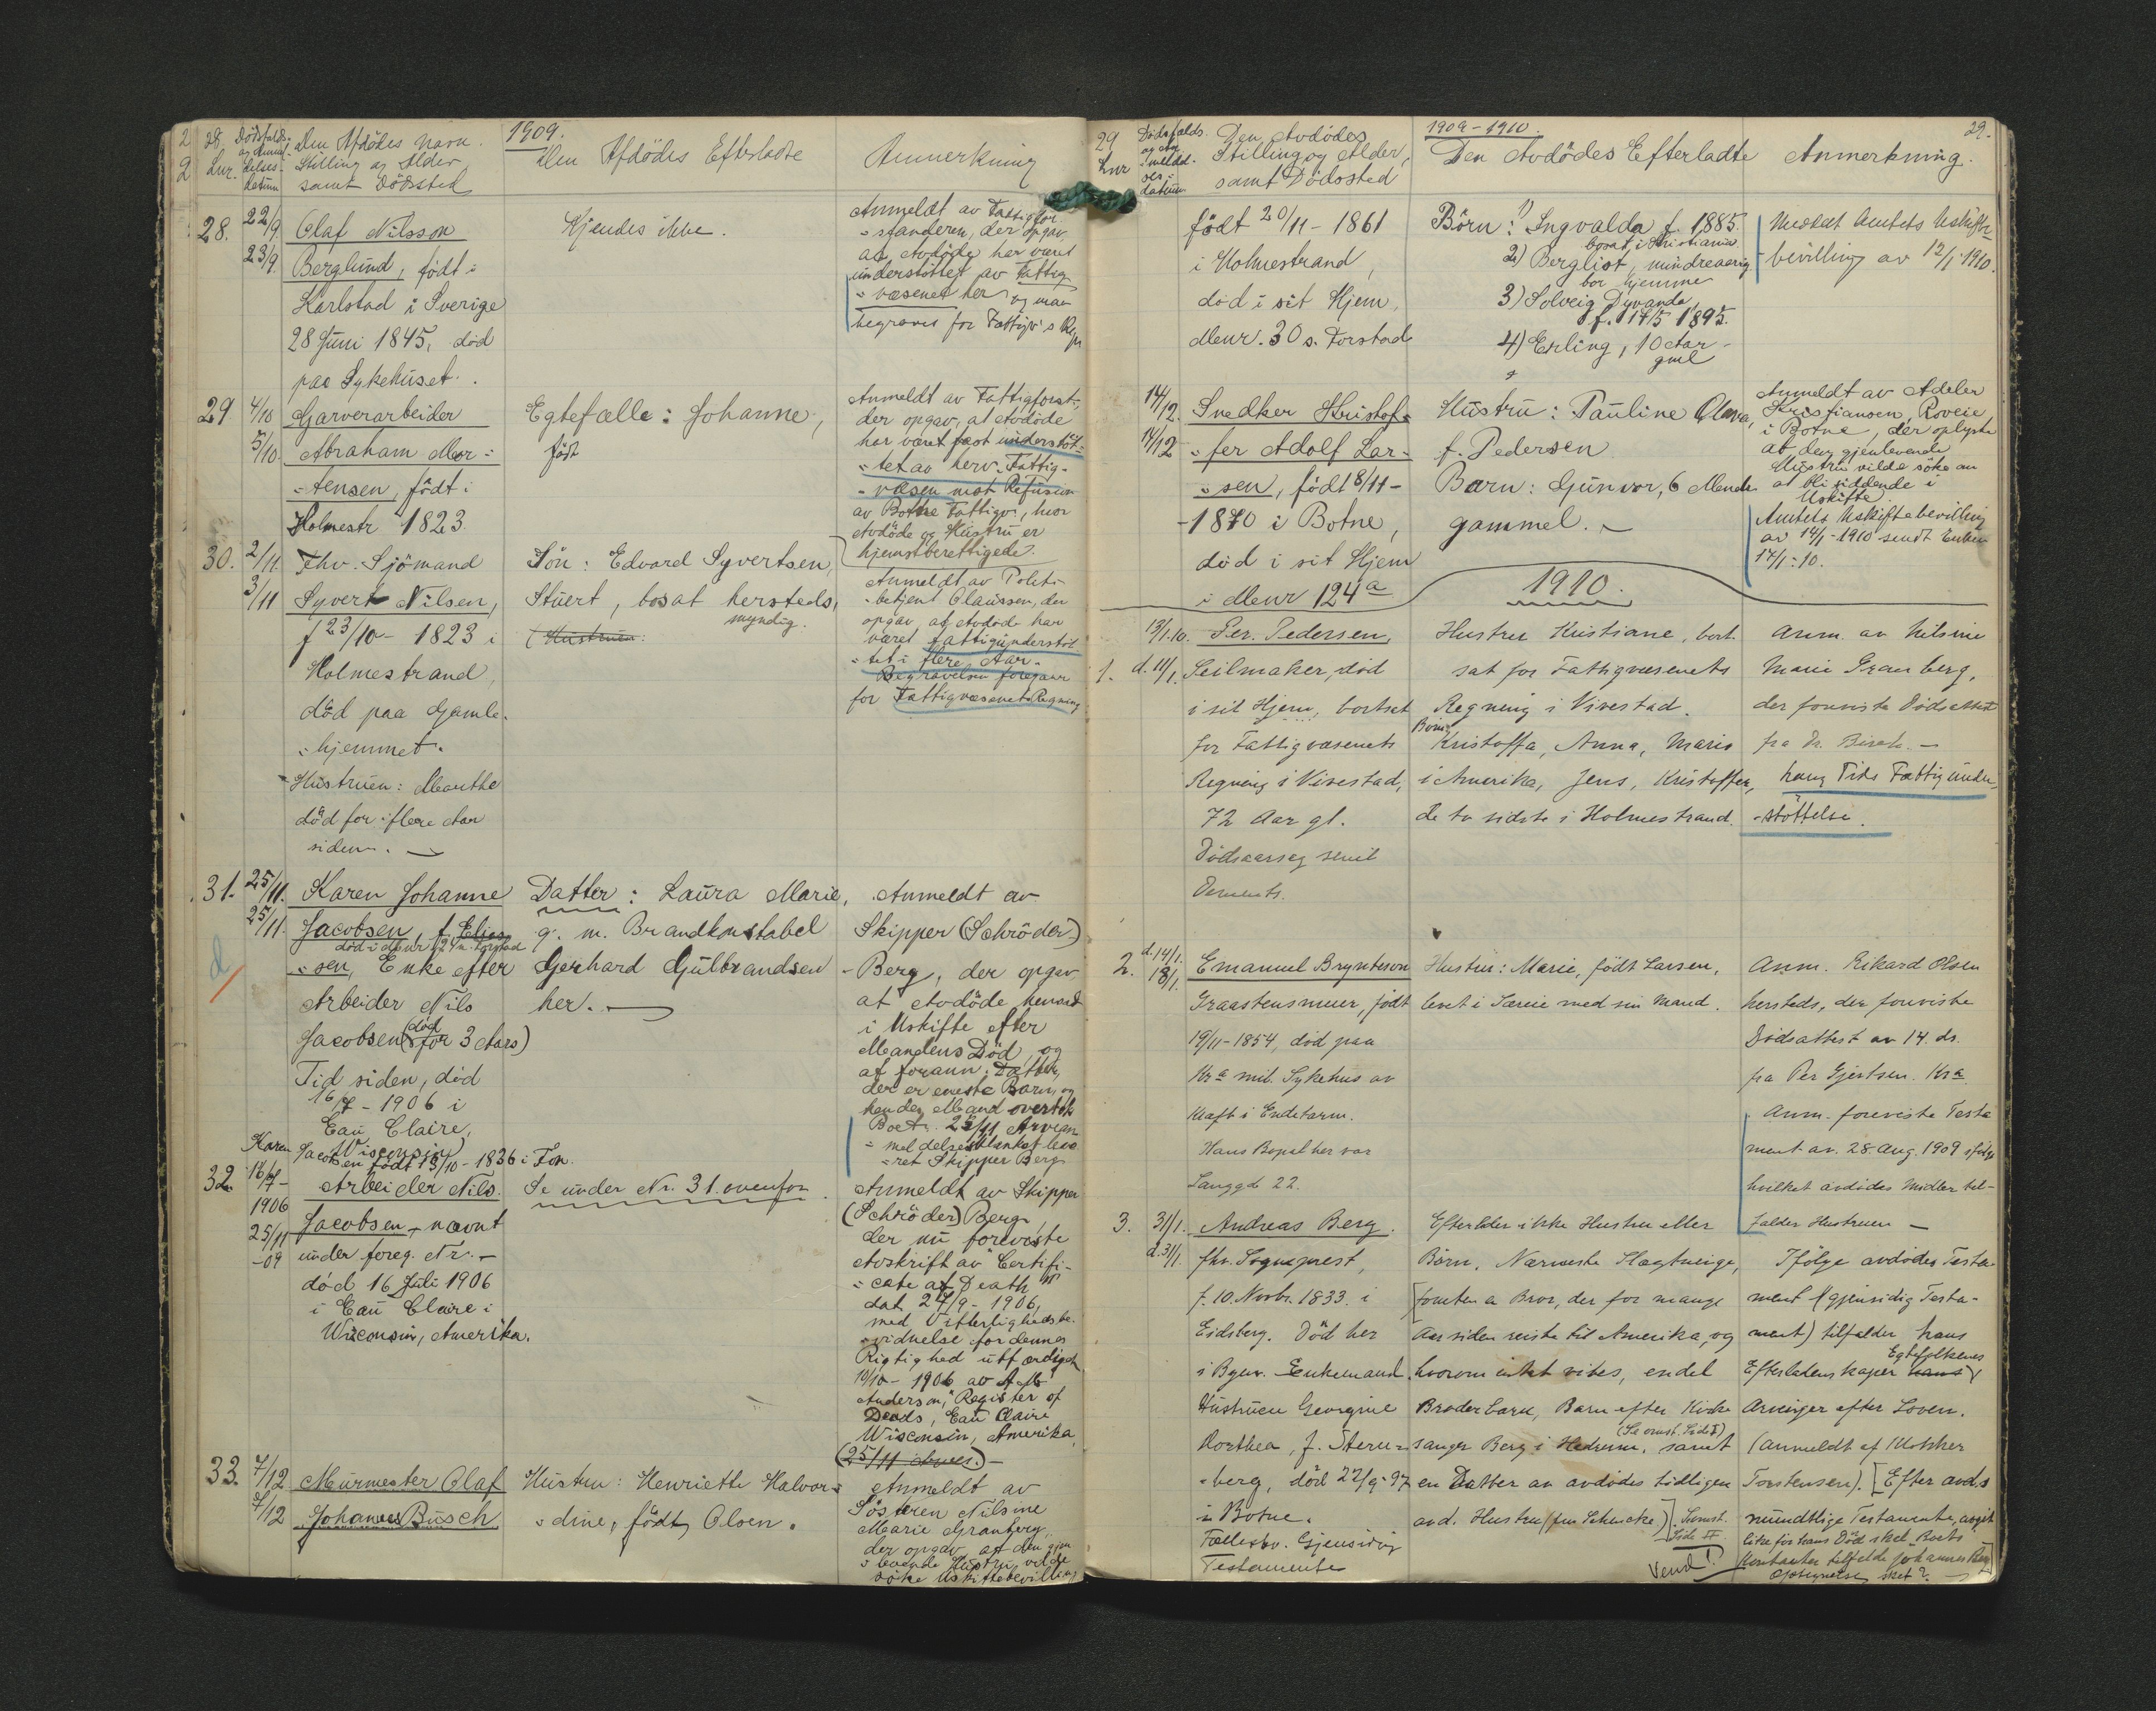 28.
Lnr.
Dödsfalds-
og Anmel-
delses-
datum
Den Afdödes Navn.
Stilling og Alder
samt Dödssted
1909.
Den Afdödes Efterladte
Anmerkning
28. 22/9. Olaf Nilsson
23/9. Berglund, født i
Karlstad i Sverige
28 Juni 1845, död
paa Sykehuset.
Kjendes ikke.
Anmeldt av Fattigfor-
standeren, der opgav,
at Avdöde har været
understöttet av Fattig-
væsenet her og man
begraves for Fattigv's Regn
29. 4/10 Garverarbeider
5/10. Abraham Mor-
tensen, födt i
Holmestr 1823.
Egtefælle: Johanne,
födt
Anmeldt av Fattigforst.,
der opgav, at Avdöde
har været fast understöt-
tet av herv. Fattig-
væsen mot Refusion
av Botne Fattigv., hvor
Avdöde og Hustru er
hjemstberettigede.
30. 2/11. Fhv. Sjömand
3/11 Syvert Nilsen,
f 23/10 - 1823 i
Holmestrand,
död paa Gamle-
hjemmet.
Hustruen: Marthe
död for flere Aar
siden.
Sön: Edvard Syvertsen,
Stuert, bosat hersteds,
myndig.
(Hustruen:
Anmeldt av Politi-
betjent Claussen, der
opgav, at Avdöde har
været fattigunderstöt-
tet i flere Aar.
Begravelsen foregaar
for Fattigvæsenets Regning
31. 25/11. Karen Johanne
25/11. Jacobsen, f. Elias-
död i Mnr. 124 a. Forstad
sen, Enke efter
Arbeider Nils
Jacobsen (död for 3 Aars)
Tid siden, död
16/7 - 1906 i
Eau Claire,
Wisconsin)
Karen Jacobsen født 13/10 - 1836 i Fon.
Datter: Laura Marie,
g. m. Brandkonstabel
Gerhard Gulbrandsen
her.
Anmeldt av
Skipper (Schröder)
Berg, der opgav
at Avdöde hensad
i Uskifte efter
Mandens Död, og
at forann. Datter,
der er eneste Barn, og
hendes Mand overtok
Boet. 25/11 Arvean-
meldelsesblanket leve-
ret Skipper Berg
32. 16/7-
1906
25/11
-09
Arbeider Nils
Jacobsen, nævnt
under foreg. Nr. -
död 16 Juli 1906
i Eau Claire i
Wisconsin, Amerika.
Se under Nr. 31. ovenfor
Anmeldt av Skipper
(Schröder) Berg,
der nu foreviste
Avskrift av "Certifi-
cate of Death"
dat 27/9 - 1906,
med Efterlighedsbe-
vidnelse for dennes
Rigtighed utfærdiget
10/10 - 1906 av A. M.
Anderson, "Register of
Deeds, Eau Claire
Wisconsin, Amerika,
33. 7/12 Murmester Olaf
7/12 Johannes Busch
Hustru: Henriette Halvor-
dine, födt Olsen.
Anmeldt av
Sösteren Nilsine
Marie Granberg,
der opgav, at den gjen-
levende Hustru vilde
söke Uskiftebevilling
29
Lnr
Dødsfalds-
og An-
meldel-
ses-
datum
Den Avdödes
Stilling og Alder,
samt Dödssted
1909 - 1910.
Den Avdödes Efterladte
Anmerkning.
29.
født 20/11 - 1861
i Holmestrand,
död i sit Hjem,
Menr. 30 s. Forstad
Börn: 1) Ingvalda f. 1885.
bosat i Kristiania
2) Bergliot, mindreaarig
bor hjemme
3) Solveig Dyvanda,
f. 17/5 1895.
4) Erling, 10 Aar
gml
Meddelt Amtets Uskifte-
bevilling av 12/1 1910.
14/12. Snedker Kristof-
14/12 fer Adolf Lar-
sen, født 8/11 -
1870 i Botne,
död i sit Hjem
i Menr 124 a
Hustru: Pauline Olava,
f. Pedersen
Barn: Gunvor, 6 Mnder
gammel.
Anmeldt av Adeler
Kristiansen, Roveie
i Botne, der oplyste
at den gjenlevende
Hustru vilde söke om
at bli siddende i
Uskifte.
Amtets Uskiftebevilling
av 14/1 - 1910 sendt Enken
17/1 - 10.
1910.
1.
13/1.10.
d. 11/1.
Per. Pedersen,
Seilmaker, död
i sit Hjem, bortsat
for Fattigvæsenets
Regning i Vivestad,
72 Aar gl.
Dödsaarsag senil
Dements.
Hustru Kristiane, bort-
sat for Fattigvæsenets
Regning i Vivestad.
Börn:
Kristoffa, Anna, Marie
i Amerika, Jens, Kristoffer,
de to sidste i Holmestrand.
Anm. av Nilsine
Marie Granberg,
der foreviste Dödsattest
fra Dr. Birch. -
Lang Tids Fattigunder-
støttelse.
2.
d. 14/1.
18/1.
Emanuel Brynteson
Graastensmurer, født
19/11 - 1854, død paa
Kr.a mil. Sykehus av
Kræft i Endetarm.
Hans Bopel her var
Langgd 22.
Hustru: Marie, født Larsen,
levet i Særeie med sin Mand.
Anm. Rikard Olsen
hersteds, der foreviste
Dødsattest av 14. ds.
fra Per Gjertsen. Kra.
Anm. foreviste Testa
ment av. 28. Aug. 1909 ifølge
hvilket avdødes Midler til-
falder Hustruen -
3. 31/1.
d. 31/1.
Andreas Berg.
fhv. Sogneprest,
f. 10. Novbr. 1833. i
Eidsberg. Död her
i Byen. Enkemand.
Hustruen Georgine
Dorthea, f. Steren-
berg, död 22/9-97
i Botne.
Fællesbo. Gjensidig
Testamente
Efterlader ikke Hustru eller
Børn. Nærmeste Slegtninge,
foruten en Bror, der for mange
Aar siden reiste til Amerika, og
hvorom intet vites, endel
Broderbarn, Barn efter Kirke-
sanger Berg i Hedrum, samt
en Datter av avdødes tidligere
avd. Hustru
Vend!
Ifölge avdødes Testa-
ment (gjensidig Testa-
ment) tilfalder hans
Efterladenskaper hans Egtefolkenes
Arvinger efter Loven.
(Anmeldt af Klokker
Torstensen). [Efter avdes
mundtlige Testamente, avgit
like før hans Död skal Boets
Kontanter tilfalde Johannes Berg]